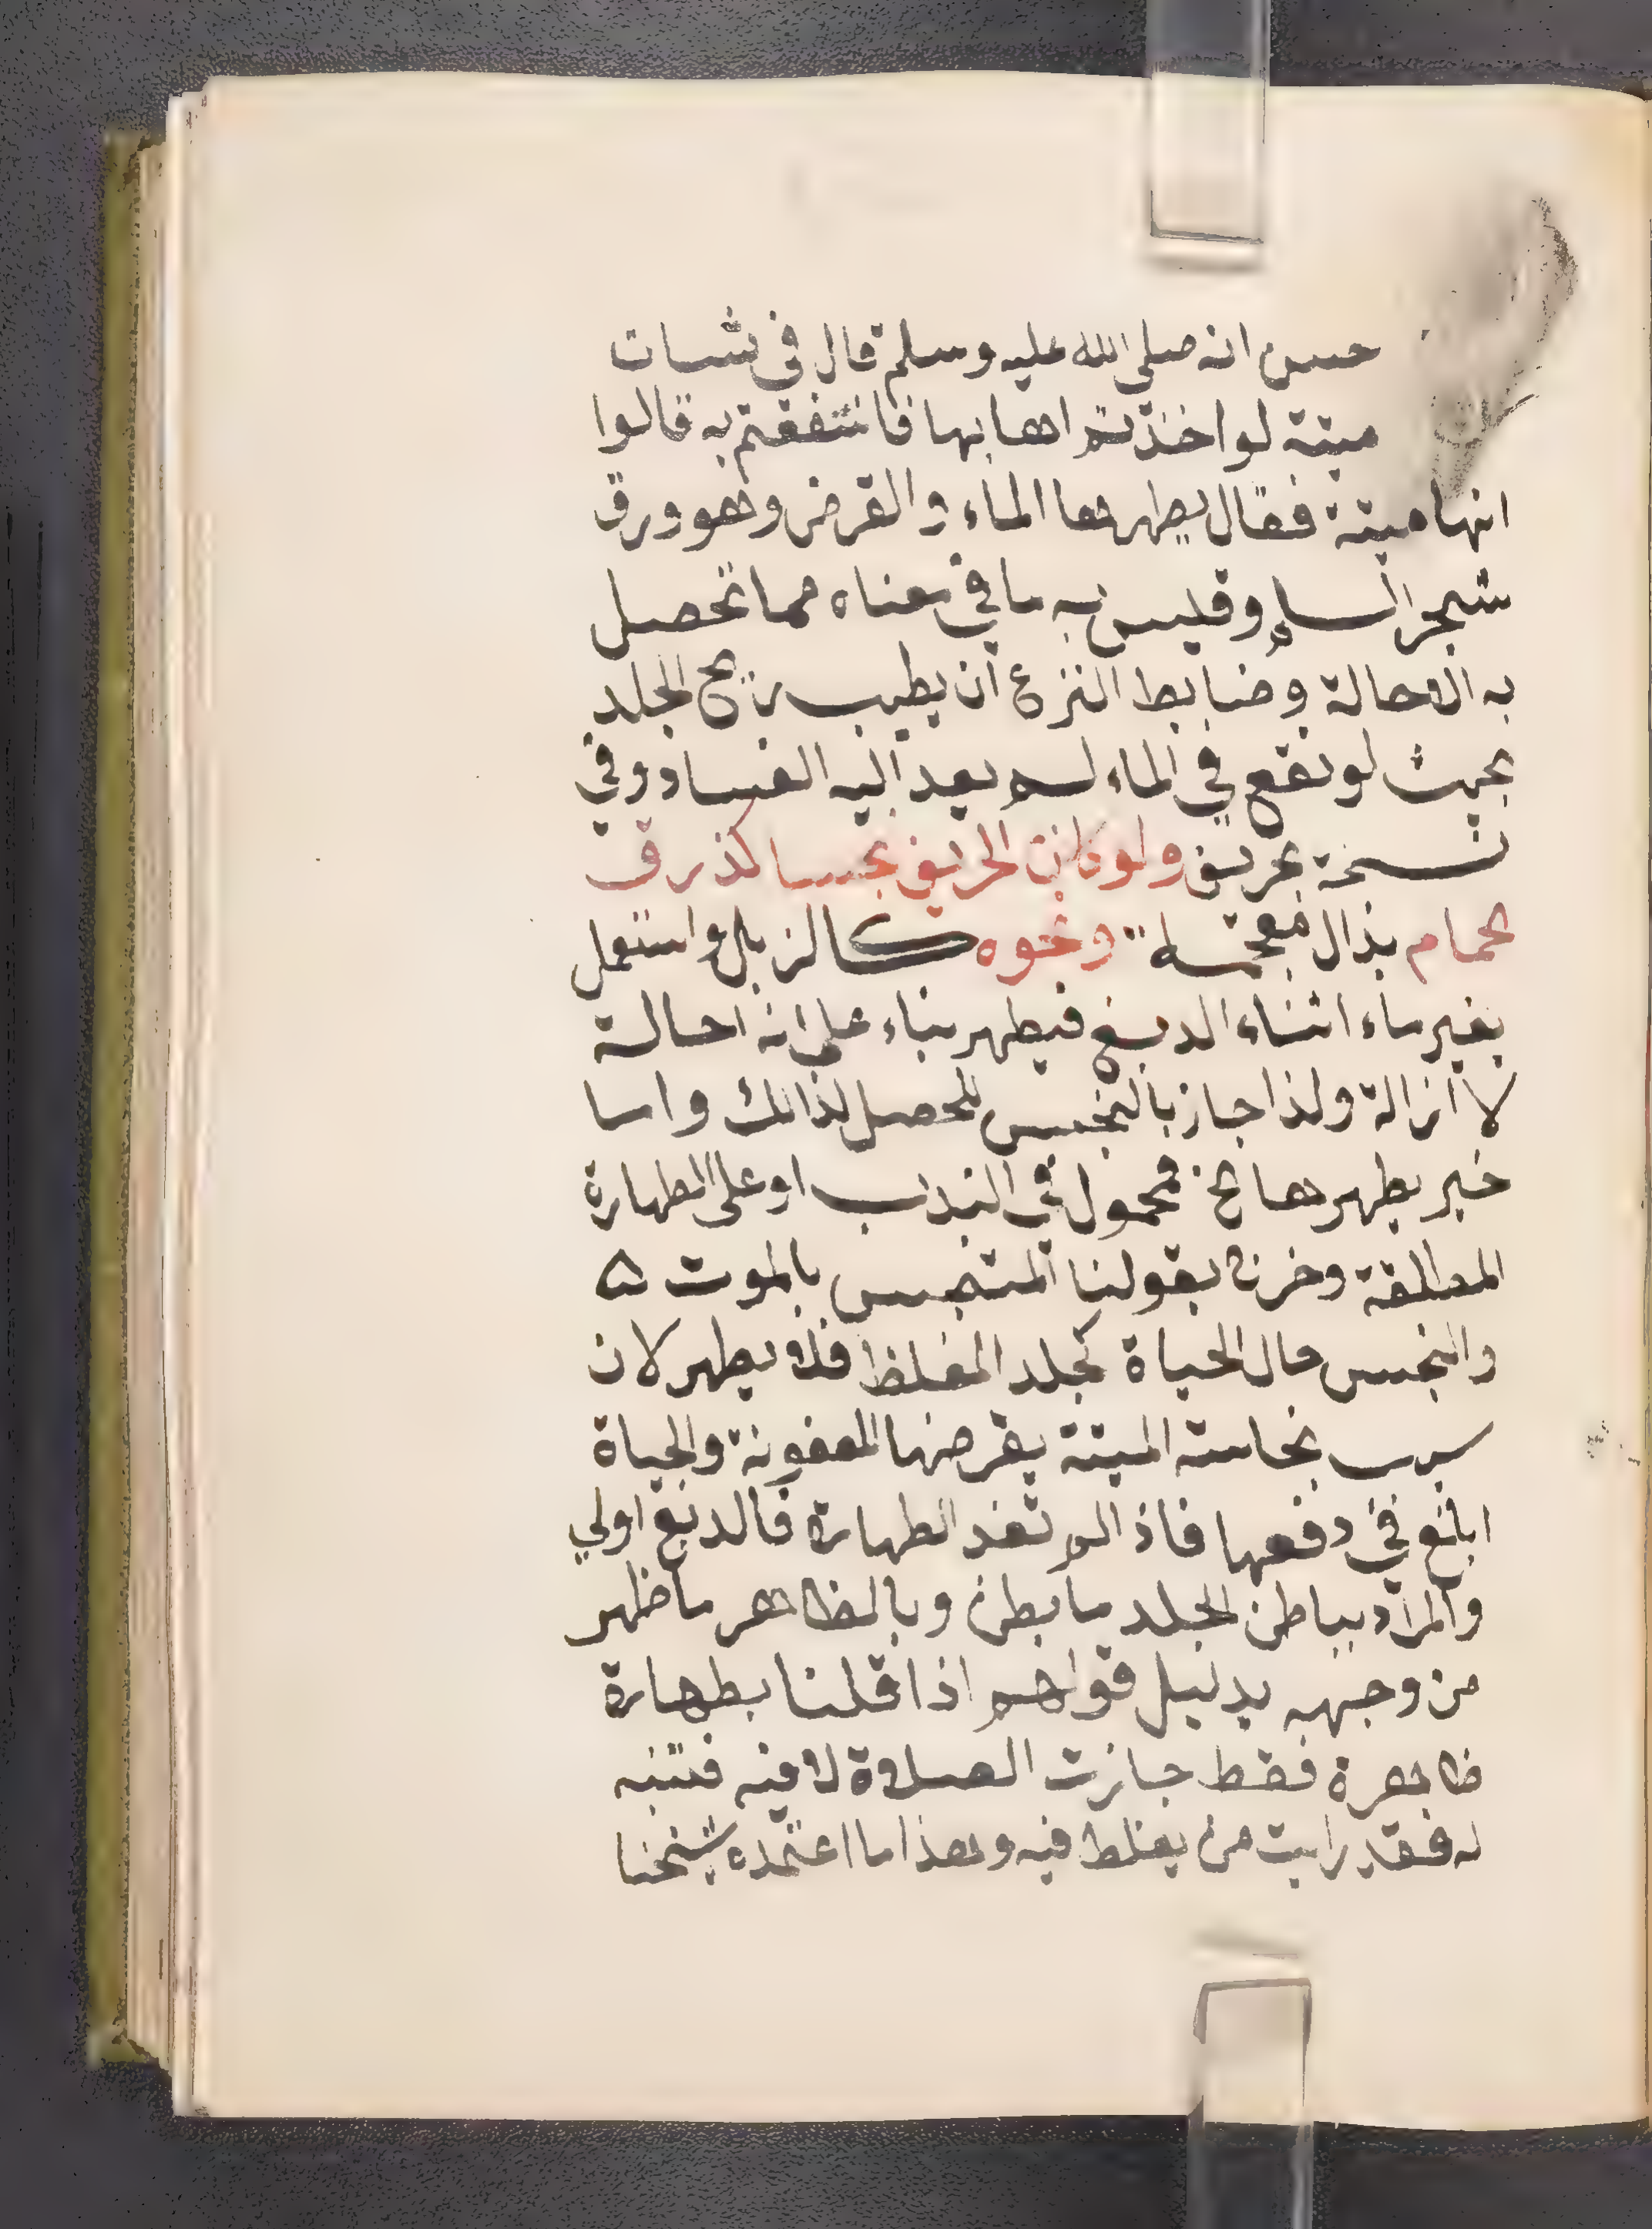 حسن انه صلي الله عليه وسلم قال في شات
ميتة لو اخذتم اهابها فانتفعتم به قالوا
انها ميتة فقال يطهرها الماء والقرض وهو ورق
شجر السلم وقيس به ما في معناه مما تحصل
به الاحالة وضابط النزع ان يطيب ريح الجلد
بحيث لو نقع في الماء لم يعد اليه الفساد وفي
نسخة بحريف ولو كان الحريف نجسا كذرق
حمام بذال معجمة ونحوه كالزبل واستعمل
بغير ماء اثناء الدبغ فيطهر بناء على انه احالة
لا ازالة ولذا جاز بالنجس المحصل لذالك واما
خبر يطهرها الخ فمحمول في الندب او على الطهارة
المطلقة وخرج بقولنا المتنجس بالموت ه
والنجس حال الحياة كجلد المغلظ فلا يطهر لان
سبب نجاسة الميتة بقرضها للعفونة والحياة
ابلغ في دفعها فاذا لم تفد الطهارة فالدبغ اولي
والمراد بباطن الجلد ما بطن وبالظاهر ما ظهر
من وجهه بدليل قولهم اذا قلنا بطهارة
ظاهرة فقط جازت الصلاة لا فيه فتنبه
له فقد رايت من يغلط فيه وهذا ما اعتمده شيخنا